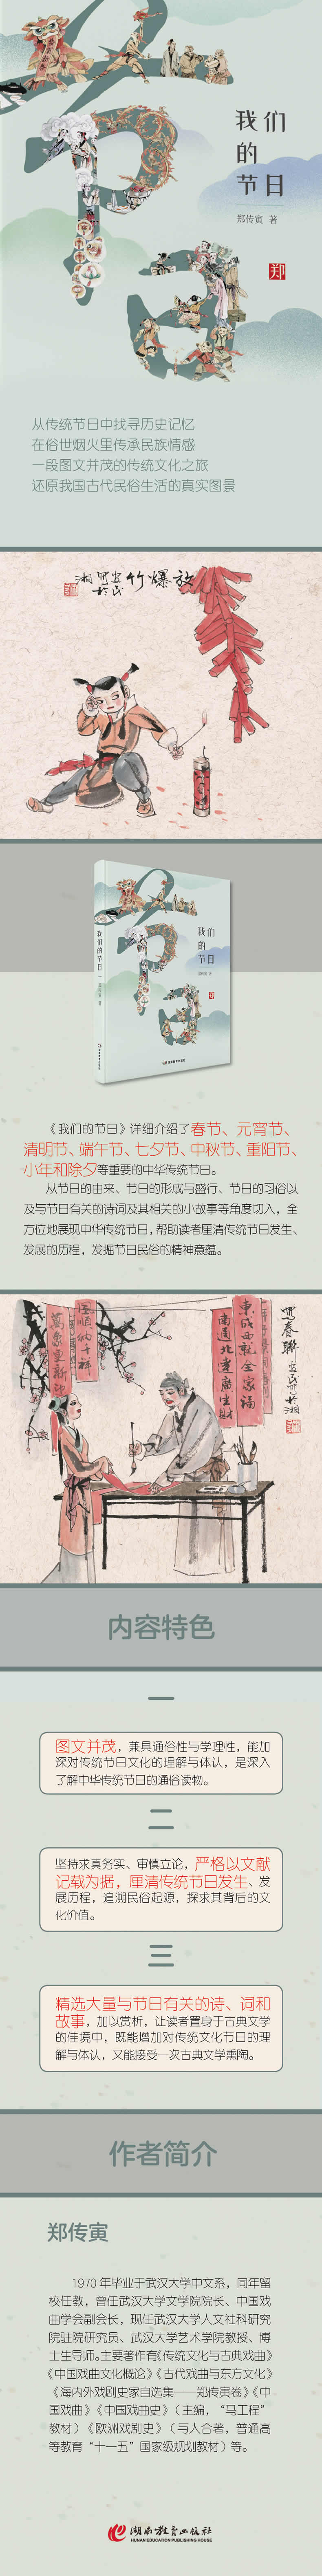 我们
的
节日
郑传寅 著
郑
从传统节日中找寻历史记忆
在俗世烟火里传承民族情感
一段图文并茂的传统文化之旅
还原我国古代民俗生活的真实图景
放爆竹
我们的节日
我们
的
节日
《我们的节日》详细介绍了春节、元宵节、
清明节、端午节、七夕节、中秋节、重阳节、
小年和除夕等重要的中华传统节日。
从节日的由来、节日的形成与盛行、节日的习俗以
及与节日有关的诗词及其相关的小故事等角度切入，全
方位地展现中华传统节日，帮助读者厘清传统节日发生、
发展的历程，发掘节日民俗的精神意蕴。
写春联
东成西就全家福
南通北达广生财
内容特色
一
图文并茂，兼具通俗性与学理性，能加
深对传统节日文化的理解与体认，是深入
了解中华传统节日的通俗读物。
二
坚持求真务实、审慎立论，严格以文献
记载为据，厘清传统节日发生、发
展历程，追溯民俗起源，探求其背后的文
化价值。
三
精选大量与节日有关的诗、词和
故事，加以赏析，让读者置身于古典文学
的佳境中，既能增加对传统文化节日的理
解与体认，又能接受一次古典文学熏陶。
作者简介
郑传寅
1970 年毕业于武汉大学中文系，同年留
校任教，曾任武汉大学文学院院长、中国戏
曲学会副会长，现任武汉大学人文社科研究
院驻院研究员、武汉大学艺术学院教授、博
士生导师。主要著作有《传统文化与古典戏曲》
《中国戏曲文化概论》《古代戏曲与东方文化》
《海内外戏剧史家自选集——郑传寅卷》《中
国戏曲》《中国戏曲史》（主编，“马工程”
教材）《欧洲戏剧史》（与人合著，普通高
等教育“十一五”国家级规划教材）等。
湖南教育出版社
HUNAN EDUCATION PUBLISHING HOUSE